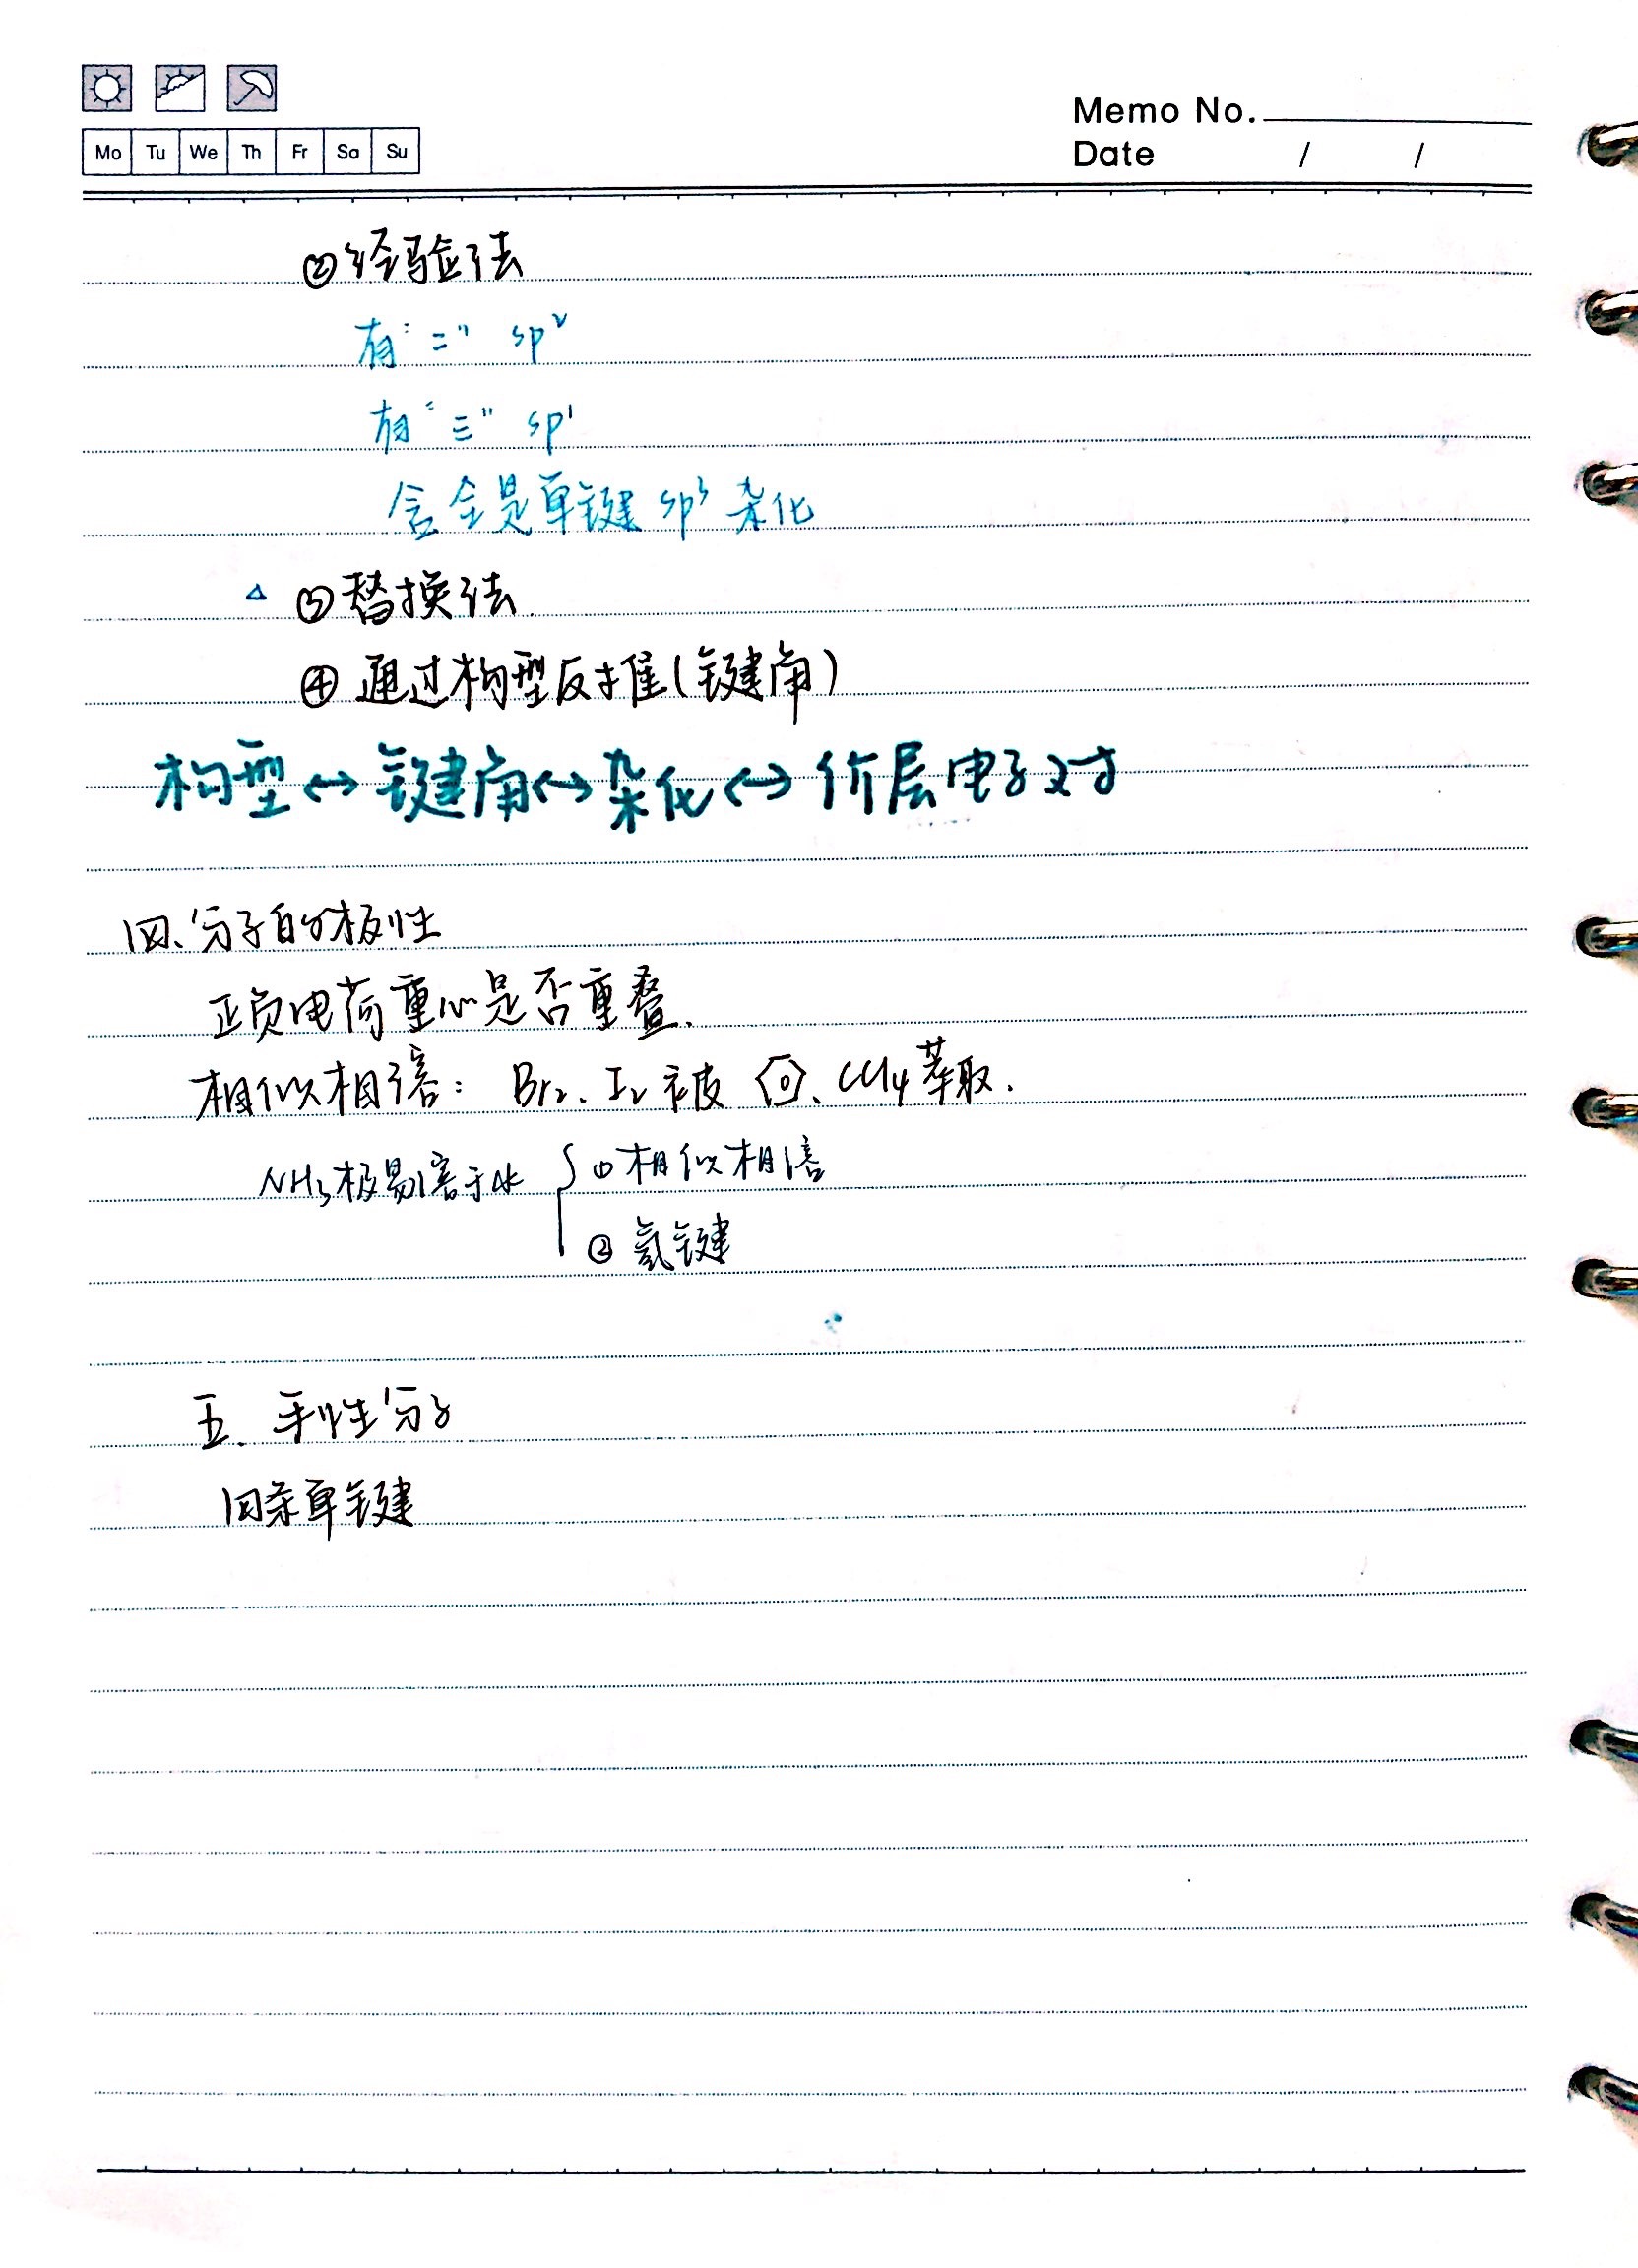 Memo No.
Mo Tu We Th Fr Sa Su
Date / /
②经验法
有“=” sp²
有“≡” sp¹
含全是单键 sp³ 杂化
△ ③替换法
④通过构型反推(键角)
构型↔键角↔杂化↔价层电子对
四、分子的极性
正负电荷重心是否重叠.
相似相溶: Br₂、I₂ 被 、CCl₄ 萃取.
NH₃极易溶于水 { ①相似相溶
②氢键
五、手性分子
四条单键